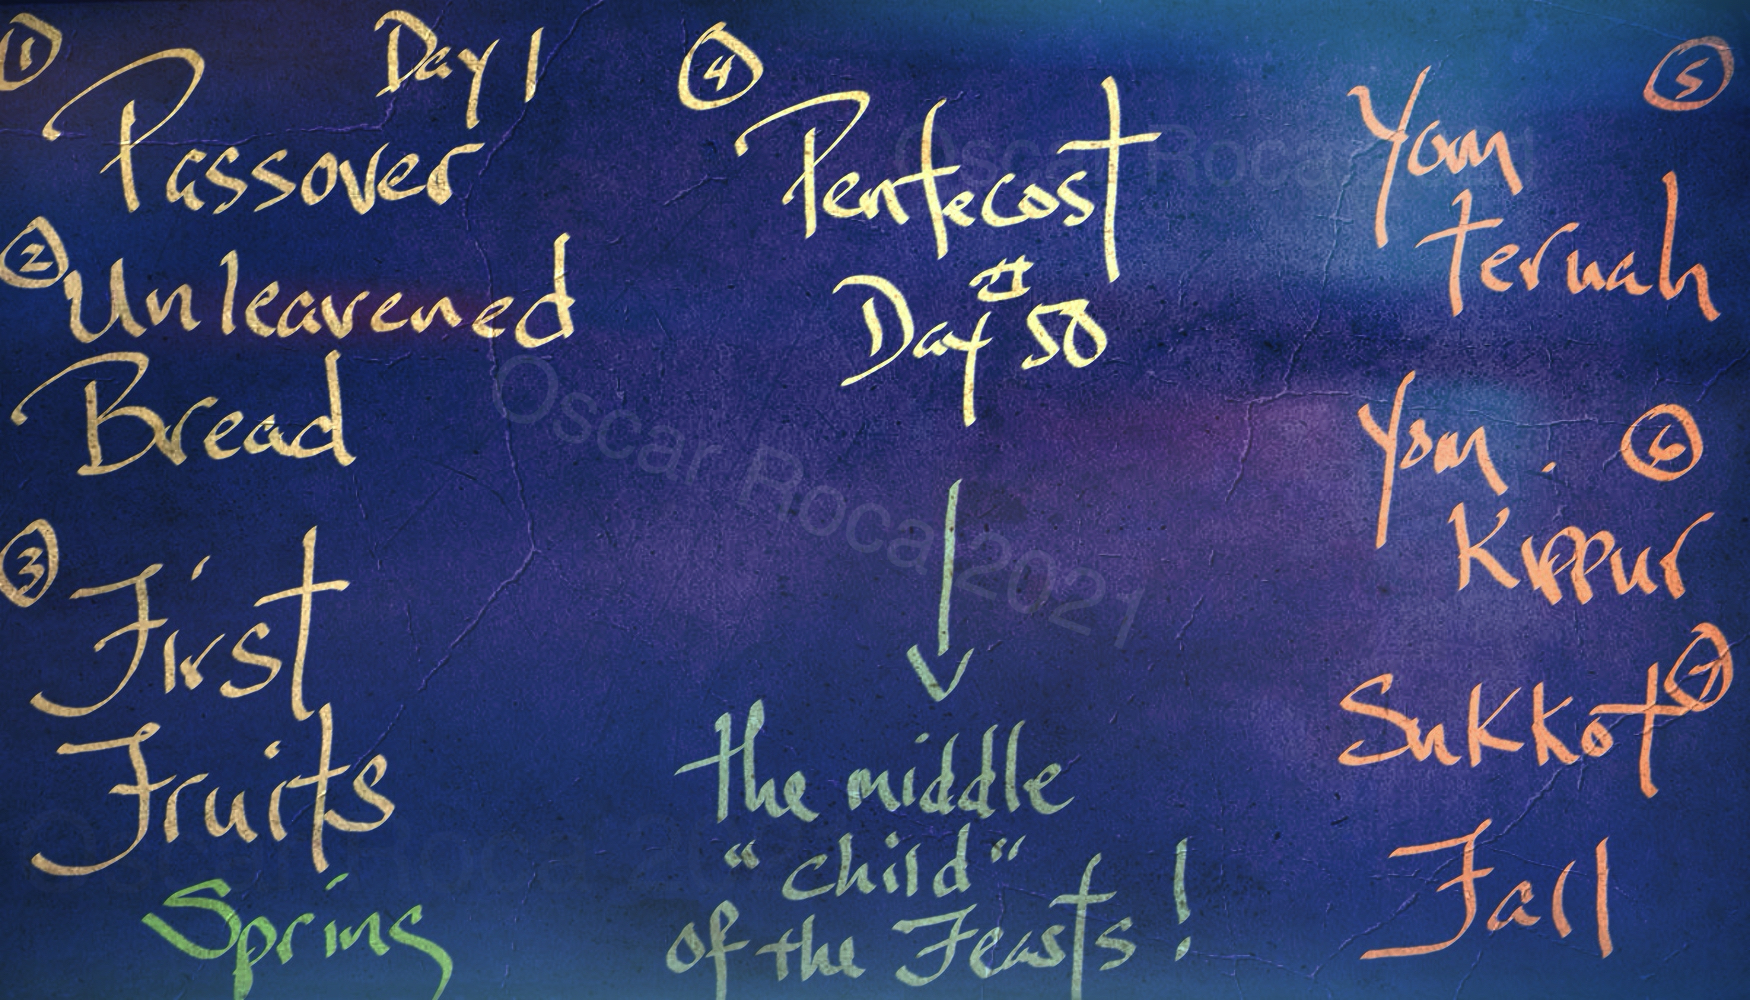 ① Day 1
Passover
② Unleavened
Bread
③ First
Fruits
Spring
④ Pentecost
Day # 50
the middle
"child"
of the Feasts!
⑤ Yom
Teruah
Yom . ⑥
Kippur
Sukkot ⑦
Fall
Oscar Roca 2021
Oscar Roca 2021
Oscar Roca 202